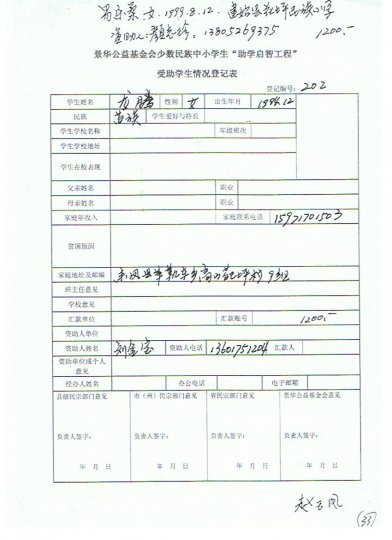 女, 1999.8.12,
资助人: 13805269375 1200.-
景华公益基金会少数民族中小学生“助学启智工程”
受助学生情况登记表
登记编号: 202
学生姓名 龙腾 性别 女 出生年月 1994.12
民族 苗族 学生爱好与特长
学生学校名称 年级班次
学生学校地址
学生在校表现
父亲姓名 职业
母亲姓名 职业
家庭年收入 家庭联系电话 15971701503
贫困原因
家庭地址及邮编 来凤县 村 9组
班主任意见
学校意见
汇款单位 汇款账号 1200.-
资助人单位
资助人姓名 刘金宝 资助人电话 13601751204 汇款人
资助单位或个人意见
经办人姓名 办公电话 电子邮箱
县级民宗部门意见 市(州)民宗部门意见 省民宗部门意见 景华公益基金会意见
负责人签字: 负责人签字: 负责人签字: 负责人签字:
年 月 日 年 月 日 年 月 日 年 月 日
赵玉凤
33